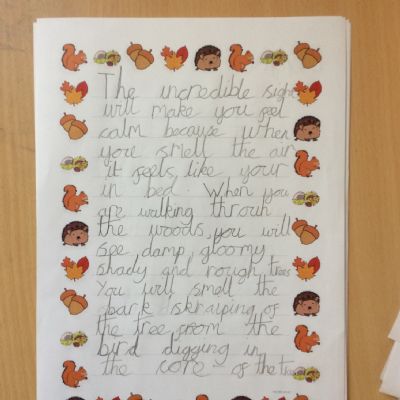 The incredible sight
will make you feel
calm because when
your smell the air
it feels like your
in bed. When you
are walking throuh
the woods, you will
see damp, gloomy
shady and rough trees
You will smell the
bark skraiping of
the tree from the
bird digging in
the core of the tree